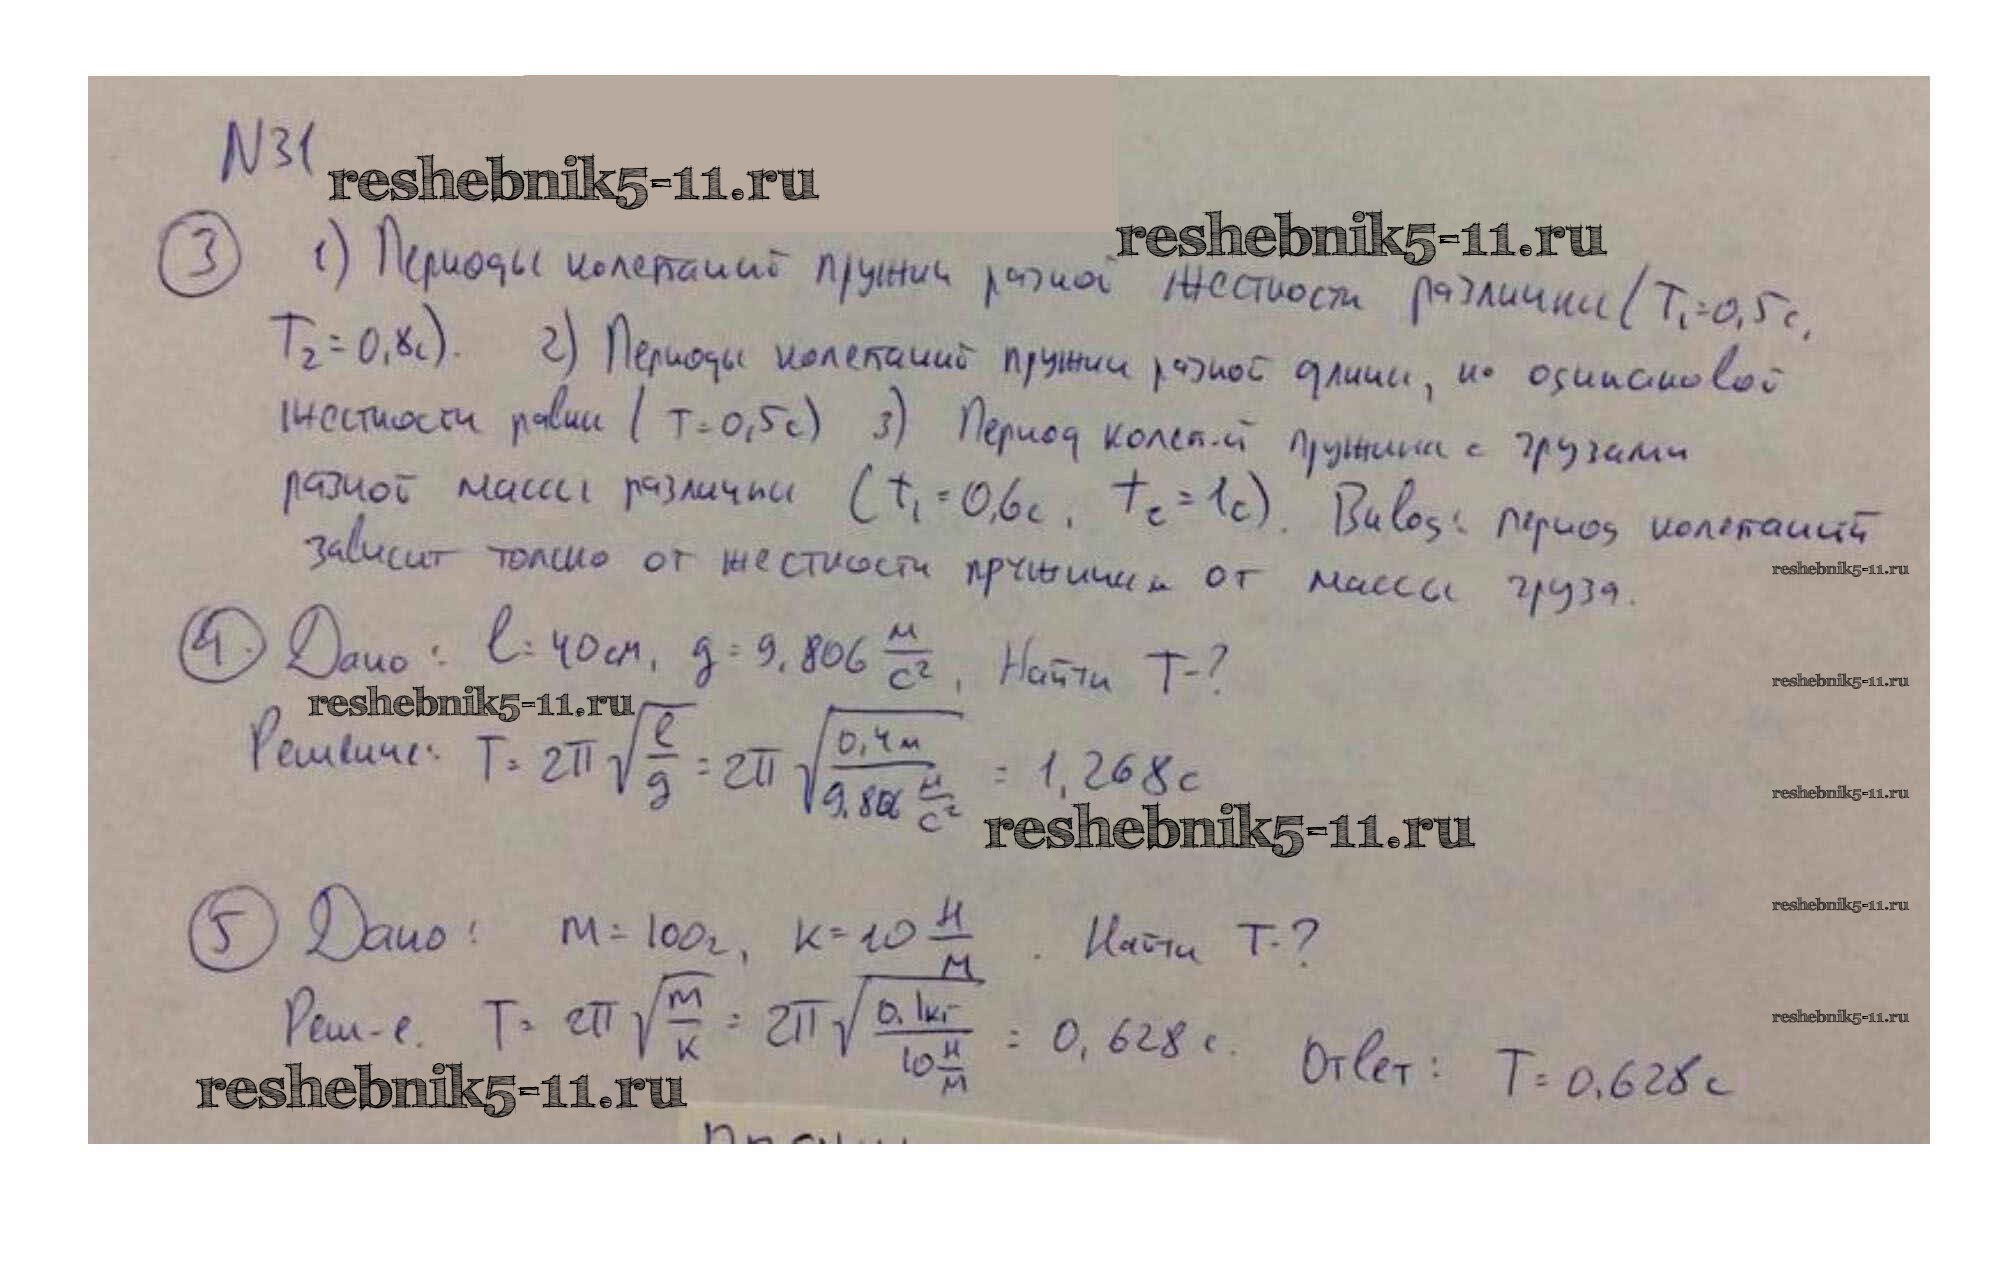 N31
reshebnik5-11.ru
reshebnik5-11.ru
3 1) Периоды колебаний пружин разной жесткости различны (T₁=0,5с,
T₂=0,8с). 2) Периоды колебаний пружин разной длины, но одинаковой
жесткости равны (T=0,5с) 3) Период колеб-й пружины с грузами
разной массы различны (t₁=0,6с, t₂=1с). Вывод: период колебаний
зависит только от жесткости пружины и от массы груза.
reshebnik5-11.ru
4. Дано: l=40см, g=9,806 м/с², Найти T-?
reshebnik5-11.ru
reshebnik5-11.ru
Решение: T=2π√(l/g)=2π√(0,4м/9,806 м/с²)=1,268с
reshebnik5-11.ru
reshebnik5-11.ru
5 Дано: m=100г, k=10 Н/м. Найти T-?
reshebnik5-11.ru
Реш-е. T=2π√(m/k)=2π√(0,1кг/10 Н/м)=0,628с. Ответ: T=0,628с
reshebnik5-11.ru
reshebnik5-11.ru